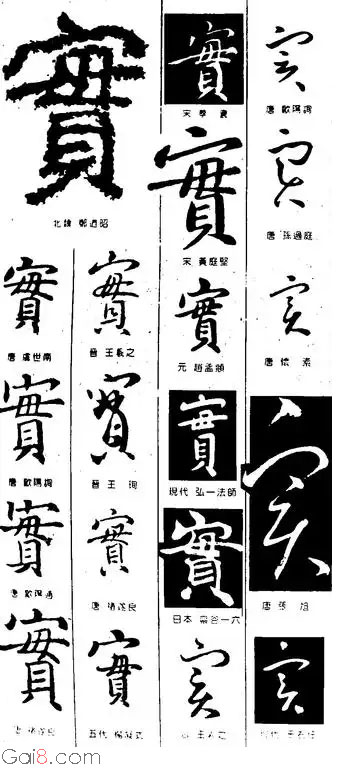 實
北魏 鄭道昭
實
唐 虞世南
實
唐 歐陽詢
實
唐 歐陽通
實
唐 褚遂良
實
晉 王羲之
實
晉 王珣
實
唐 褚遂良
實
五代 楊凝式
實
宋
實
宋 黃庭堅
實
元 趙孟頫
實
現代 弘一法師
實
日本 巖谷一六
实
实
唐 歐陽詢
实
唐 孫過庭
实
唐 懷素
实
唐 張旭
实
Gai8.com